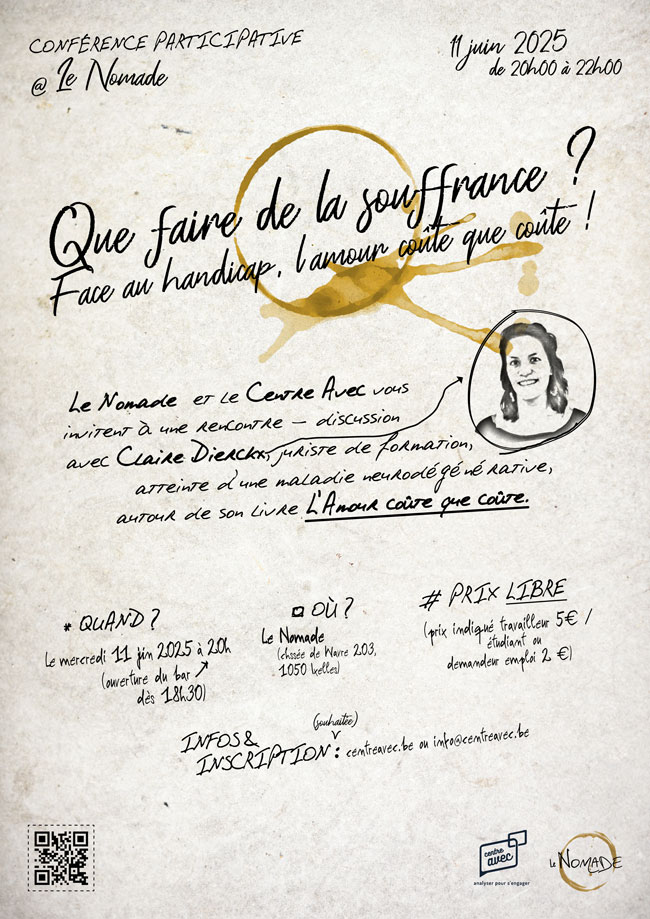 CONFÉRENCE PARTICIPATIVE
@ Le Nomade
11 juin 2025
de 20h00 à 22h00
Que faire de la souffrance ?
Face au handicap, l'amour coûte que coûte !
Le Nomade et le Centre Avec vous
invitent à une rencontre – discussion
avec Claire Dierckx, juriste de formation,
atteinte d'une maladie neurodégénérative,
autour de son livre L'Amour coûte que coûte.
* QUAND ?
Le mercredi 11 jin 2025 à 20h
(ouverture du bar
dès 18h30)
OÙ ?
Le Nomade
(chssée de Wavre 203,
1050 Ixelles)
# PRIX LIBRE
(prix indiqué travailleur 5€ /
étudiant ou
demandeur emploi 2 €)
(souhaitée)
INFOS &
INSCRIPTION : centreavec.be ou info@centreavec.be
centre
avec
analyser pour s'engager
Le NOMADE